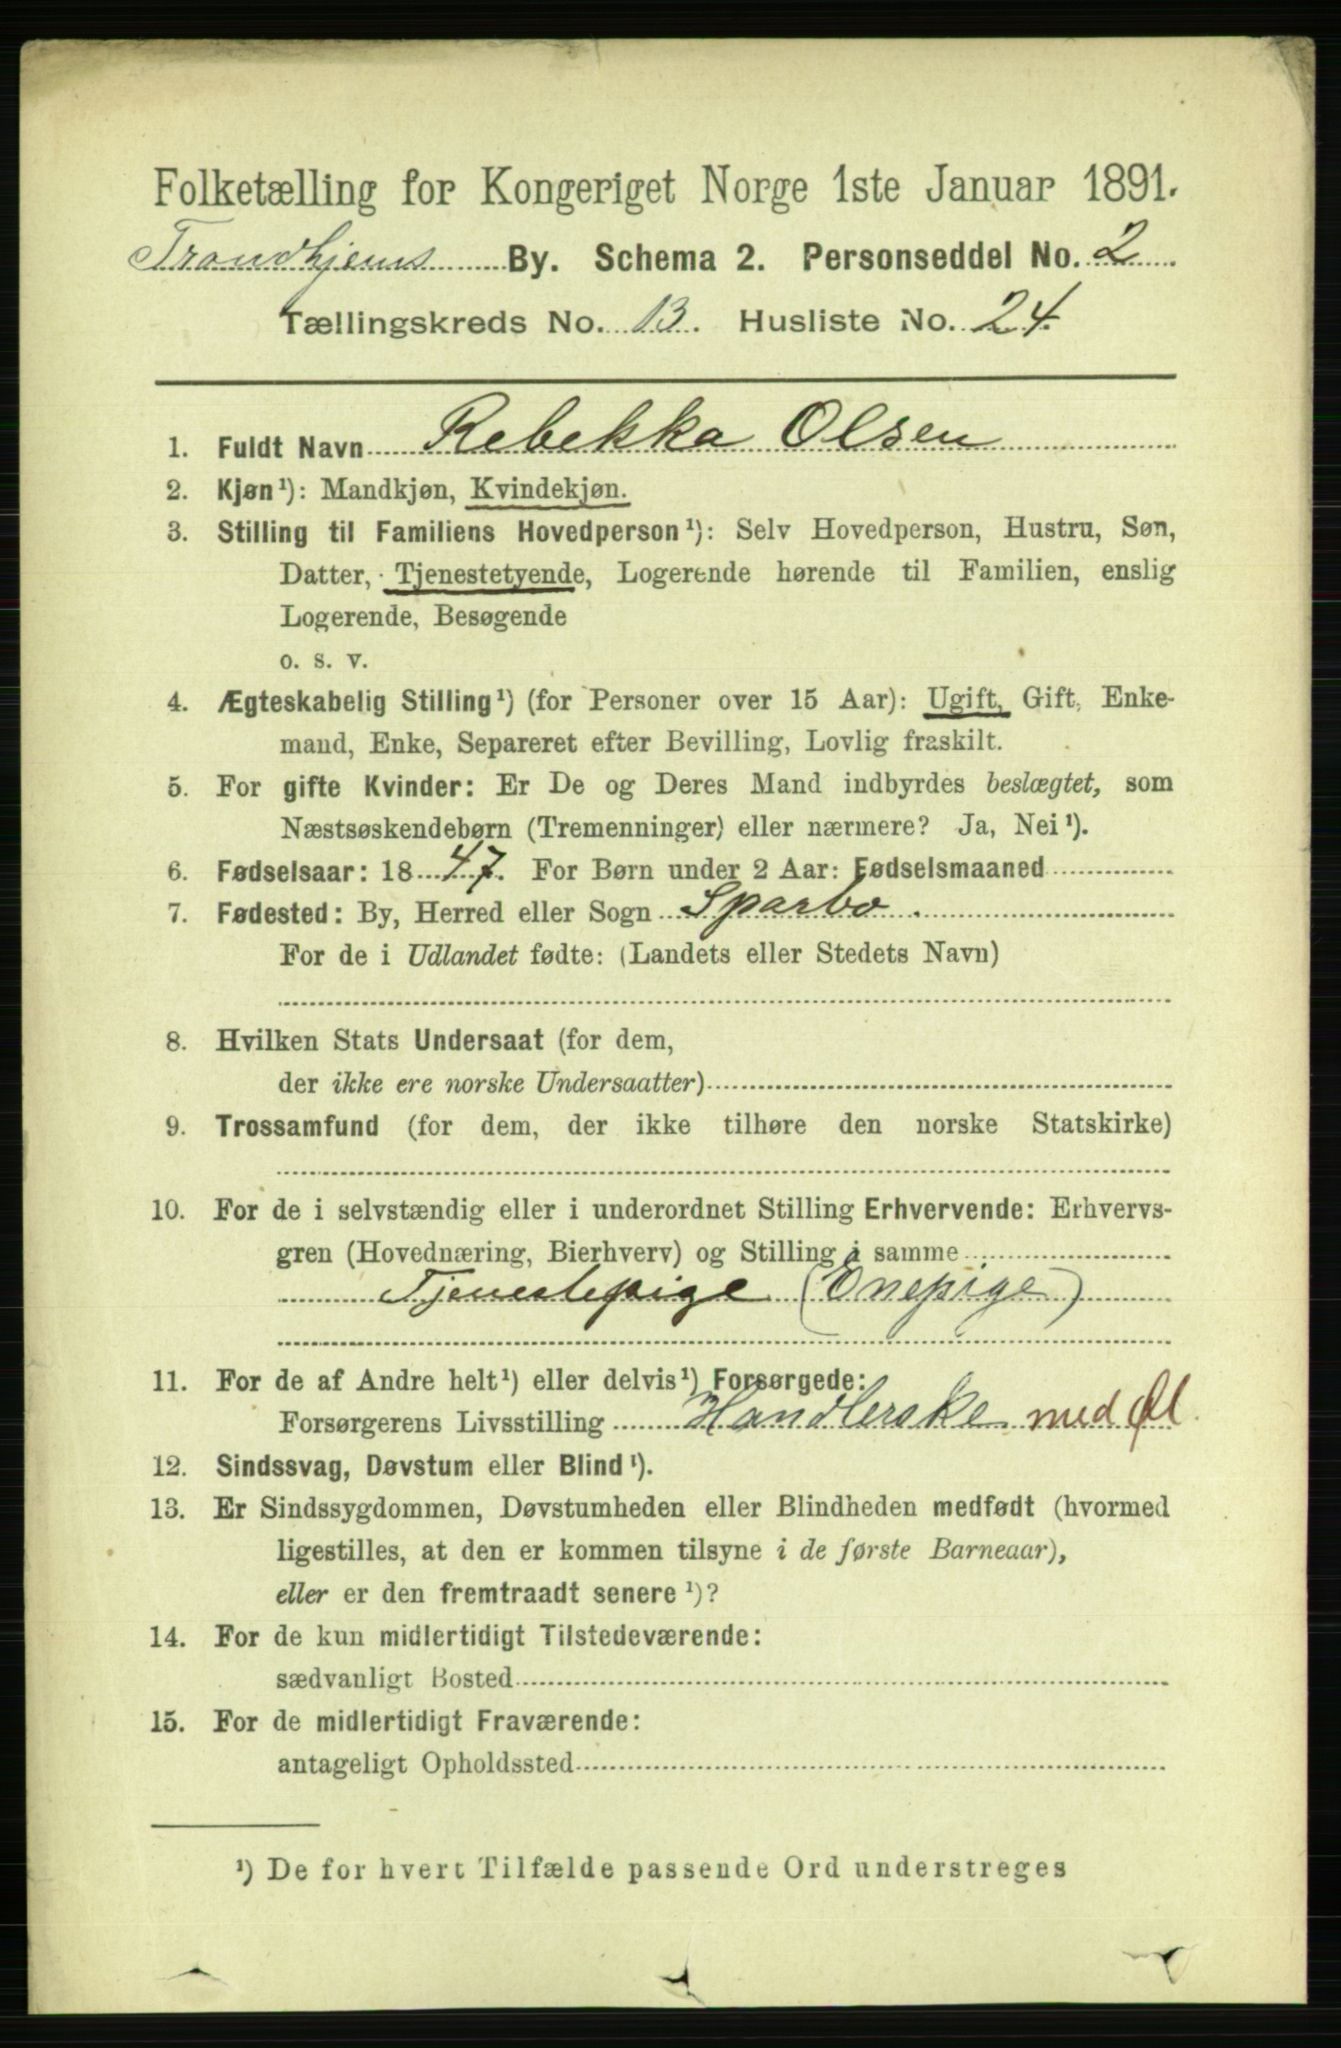 Folketælling for Kongeriget Norge 1ste Januar 1891.
Trondhjems By. Schema 2. Personseddel No. 2
Tællingskreds No. 13. Husliste No. 24.
1. Fuldt Navn Rebekka Olsen
2. Kjøn¹): Mandkjøn, Kvindekjøn.
3. Stilling til Familiens Hovedperson¹): Selv Hovedperson, Hustru, Søn,
Datter, Tjenestetyende, Logerende hørende til Familien, enslig
Logerende, Besøgende
o. s. v.
4. Ægteskabelig Stilling¹) (for Personer over 15 Aar): Ugift, Gift, Enke-
mand, Enke, Separeret efter Bevilling, Lovlig fraskilt.
5. For gifte Kvinder: Er De og Deres Mand indbyrdes beslægtet, som
Næstsøskendebørn (Tremenninger) eller nærmere? Ja, Nei¹).
6. Fødselsaar: 1847. For Børn under 2 Aar: Fødselsmaaned
7. Fødested: By, Herred eller Sogn Sparbo.
For de i Udlandet fødte: (Landets eller Stedets Navn)
8. Hvilken Stats Undersaat (for dem,
der ikke ere norske Undersaatter)
9. Trossamfund (for dem, der ikke tilhøre den norske Statskirke)
10. For de i selvstændig eller i underordnet Stilling Erhvervende: Erhvervs-
gren (Hovednæring, Bierhverv) og Stilling i samme
Tjenestepige (Enepige)
11. For de af Andre helt¹) eller delvis¹) Forsørgede:
Forsørgerens Livsstilling Handlerske med Øl.
12. Sindssvag, Døvstum eller Blind¹).
13. Er Sindssygdommen, Døvstumheden eller Blindheden medfødt (hvormed
ligestilles, at den er kommen tilsyne i de første Barneaar),
eller er den fremtraadt senere¹)?
14. For de kun midlertidigt Tilstedeværende:
sædvanligt Bosted
15. For de midlertidigt Fraværende:
antageligt Opholdssted
¹) De for hvert Tilfælde passende Ord understreges